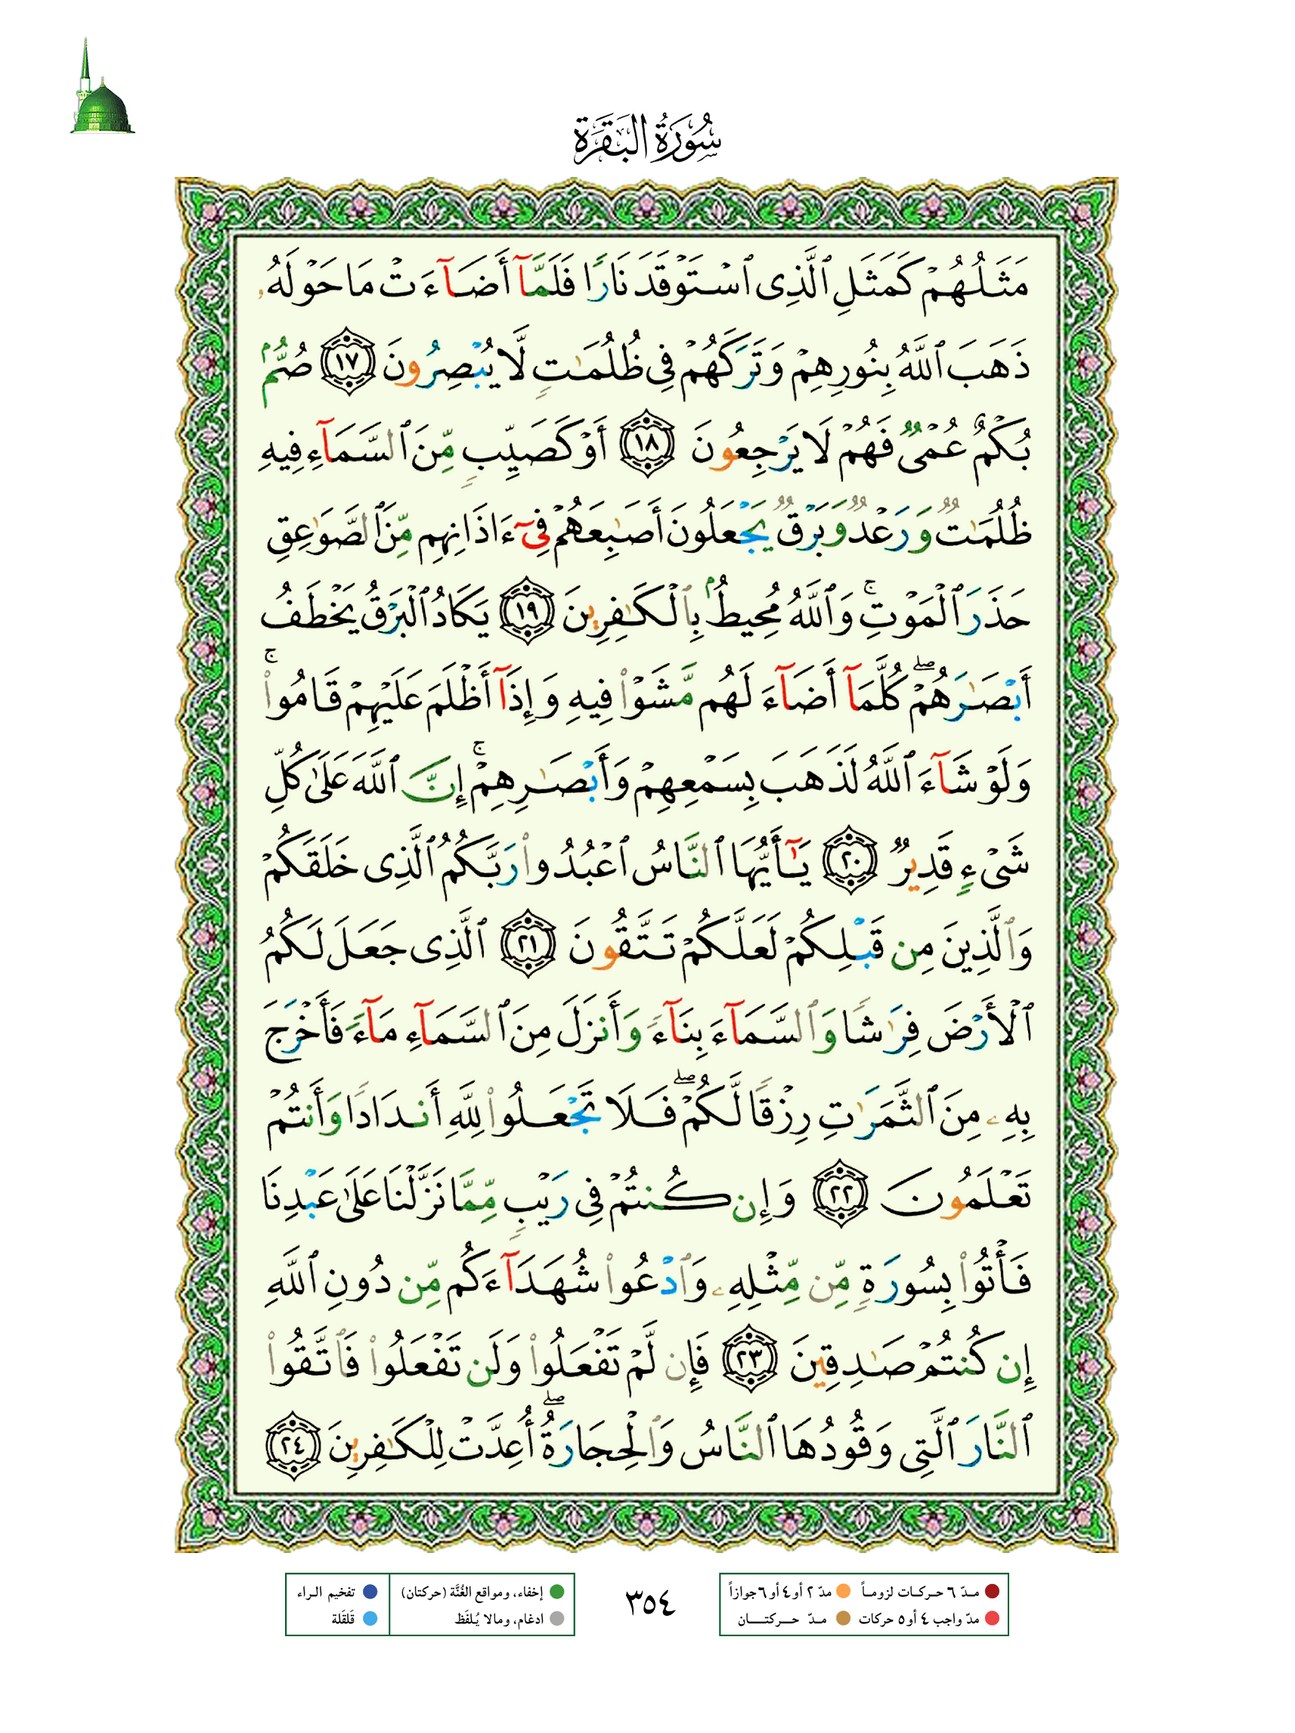 سُورَةُ البَقَرَةِ
مَثَلُهُمْ كَمَثَلِ ٱلَّذِى ٱسْتَوْقَدَ نَارًا فَلَمَّآ أَضَآءَتْ مَا حَوْلَهُۥ
ذَهَبَ ٱللَّهُ بِنُورِهِمْ وَتَرَكَهُمْ فِى ظُلُمَـٰتٍ لَّا يُبْصِرُونَ ١٧ صُمٌّۢ
بُكْمٌ عُمْىٌ فَهُمْ لَا يَرْجِعُونَ ١٨ أَوْ كَصَيِّبٍ مِّنَ ٱلسَّمَآءِ فِيهِ
ظُلُمَـٰتٌ وَرَعْدٌ وَبَرْقٌ يَجْعَلُونَ أَصَـٰبِعَهُمْ فِىٓ ءَاذَانِهِم مِّنَ ٱلصَّوَٰعِقِ
حَذَرَ ٱلْمَوْتِ ۚ وَٱللَّهُ مُحِيطٌۢ بِٱلْكَـٰفِرِينَ ١٩ يَكَادُ ٱلْبَرْقُ يَخْطَفُ
أَبْصَـٰرَهُمْ ۖ كُلَّمَآ أَضَآءَ لَهُم مَّشَوْا۟ فِيهِ وَإِذَآ أَظْلَمَ عَلَيْهِمْ قَامُوا۟ ۚ
وَلَوْ شَآءَ ٱللَّهُ لَذَهَبَ بِسَمْعِهِمْ وَأَبْصَـٰرِهِمْ ۚ إِنَّ ٱللَّهَ عَلَىٰ كُلِّ
شَىْءٍ قَدِيرٌ ٢٠ يَـٰٓأَيُّهَا ٱلنَّاسُ ٱعْبُدُوا۟ رَبَّكُمُ ٱلَّذِى خَلَقَكُمْ
وَٱلَّذِينَ مِن قَبْلِكُمْ لَعَلَّكُمْ تَتَّقُونَ ٢١ ٱلَّذِى جَعَلَ لَكُمُ
ٱلْأَرْضَ فِرَٰشًا وَٱلسَّمَآءَ بِنَآءً وَأَنزَلَ مِنَ ٱلسَّمَآءِ مَآءً فَأَخْرَجَ
بِهِۦ مِنَ ٱلثَّمَرَٰتِ رِزْقًا لَّكُمْ ۖ فَلَا تَجْعَلُوا۟ لِلَّهِ أَندَادًا وَأَنتُمْ
تَعْلَمُونَ ٢٢ وَإِن كُنتُمْ فِى رَيْبٍ مِّمَّا نَزَّلْنَا عَلَىٰ عَبْدِنَا
فَأْتُوا۟ بِسُورَةٍ مِّن مِّثْلِهِۦ وَٱدْعُوا۟ شُهَدَآءَكُم مِّن دُونِ ٱللَّهِ
إِن كُنتُمْ صَـٰدِقِينَ ٢٣ فَإِن لَّمْ تَفْعَلُوا۟ وَلَن تَفْعَلُوا۟ فَٱتَّقُوا۟
ٱلنَّارَ ٱلَّتِى وَقُودُهَا ٱلنَّاسُ وَٱلْحِجَارَةُ ۖ أُعِدَّتْ لِلْكَـٰفِرِينَ ٢٤
مـدّ ٦ حـركـات لزومـاً مدّ ٢ أو ٤ أو ٦ جوازاً
مدّ واجب ٤ أو ٥ حركات مـدّ حـركتـان
٣٥٤
إخفاء، ومواقع الغُنَّة (حركتان) تفخيم الراء
ادغام، ومالا يُـلفَظ قَلقَلة